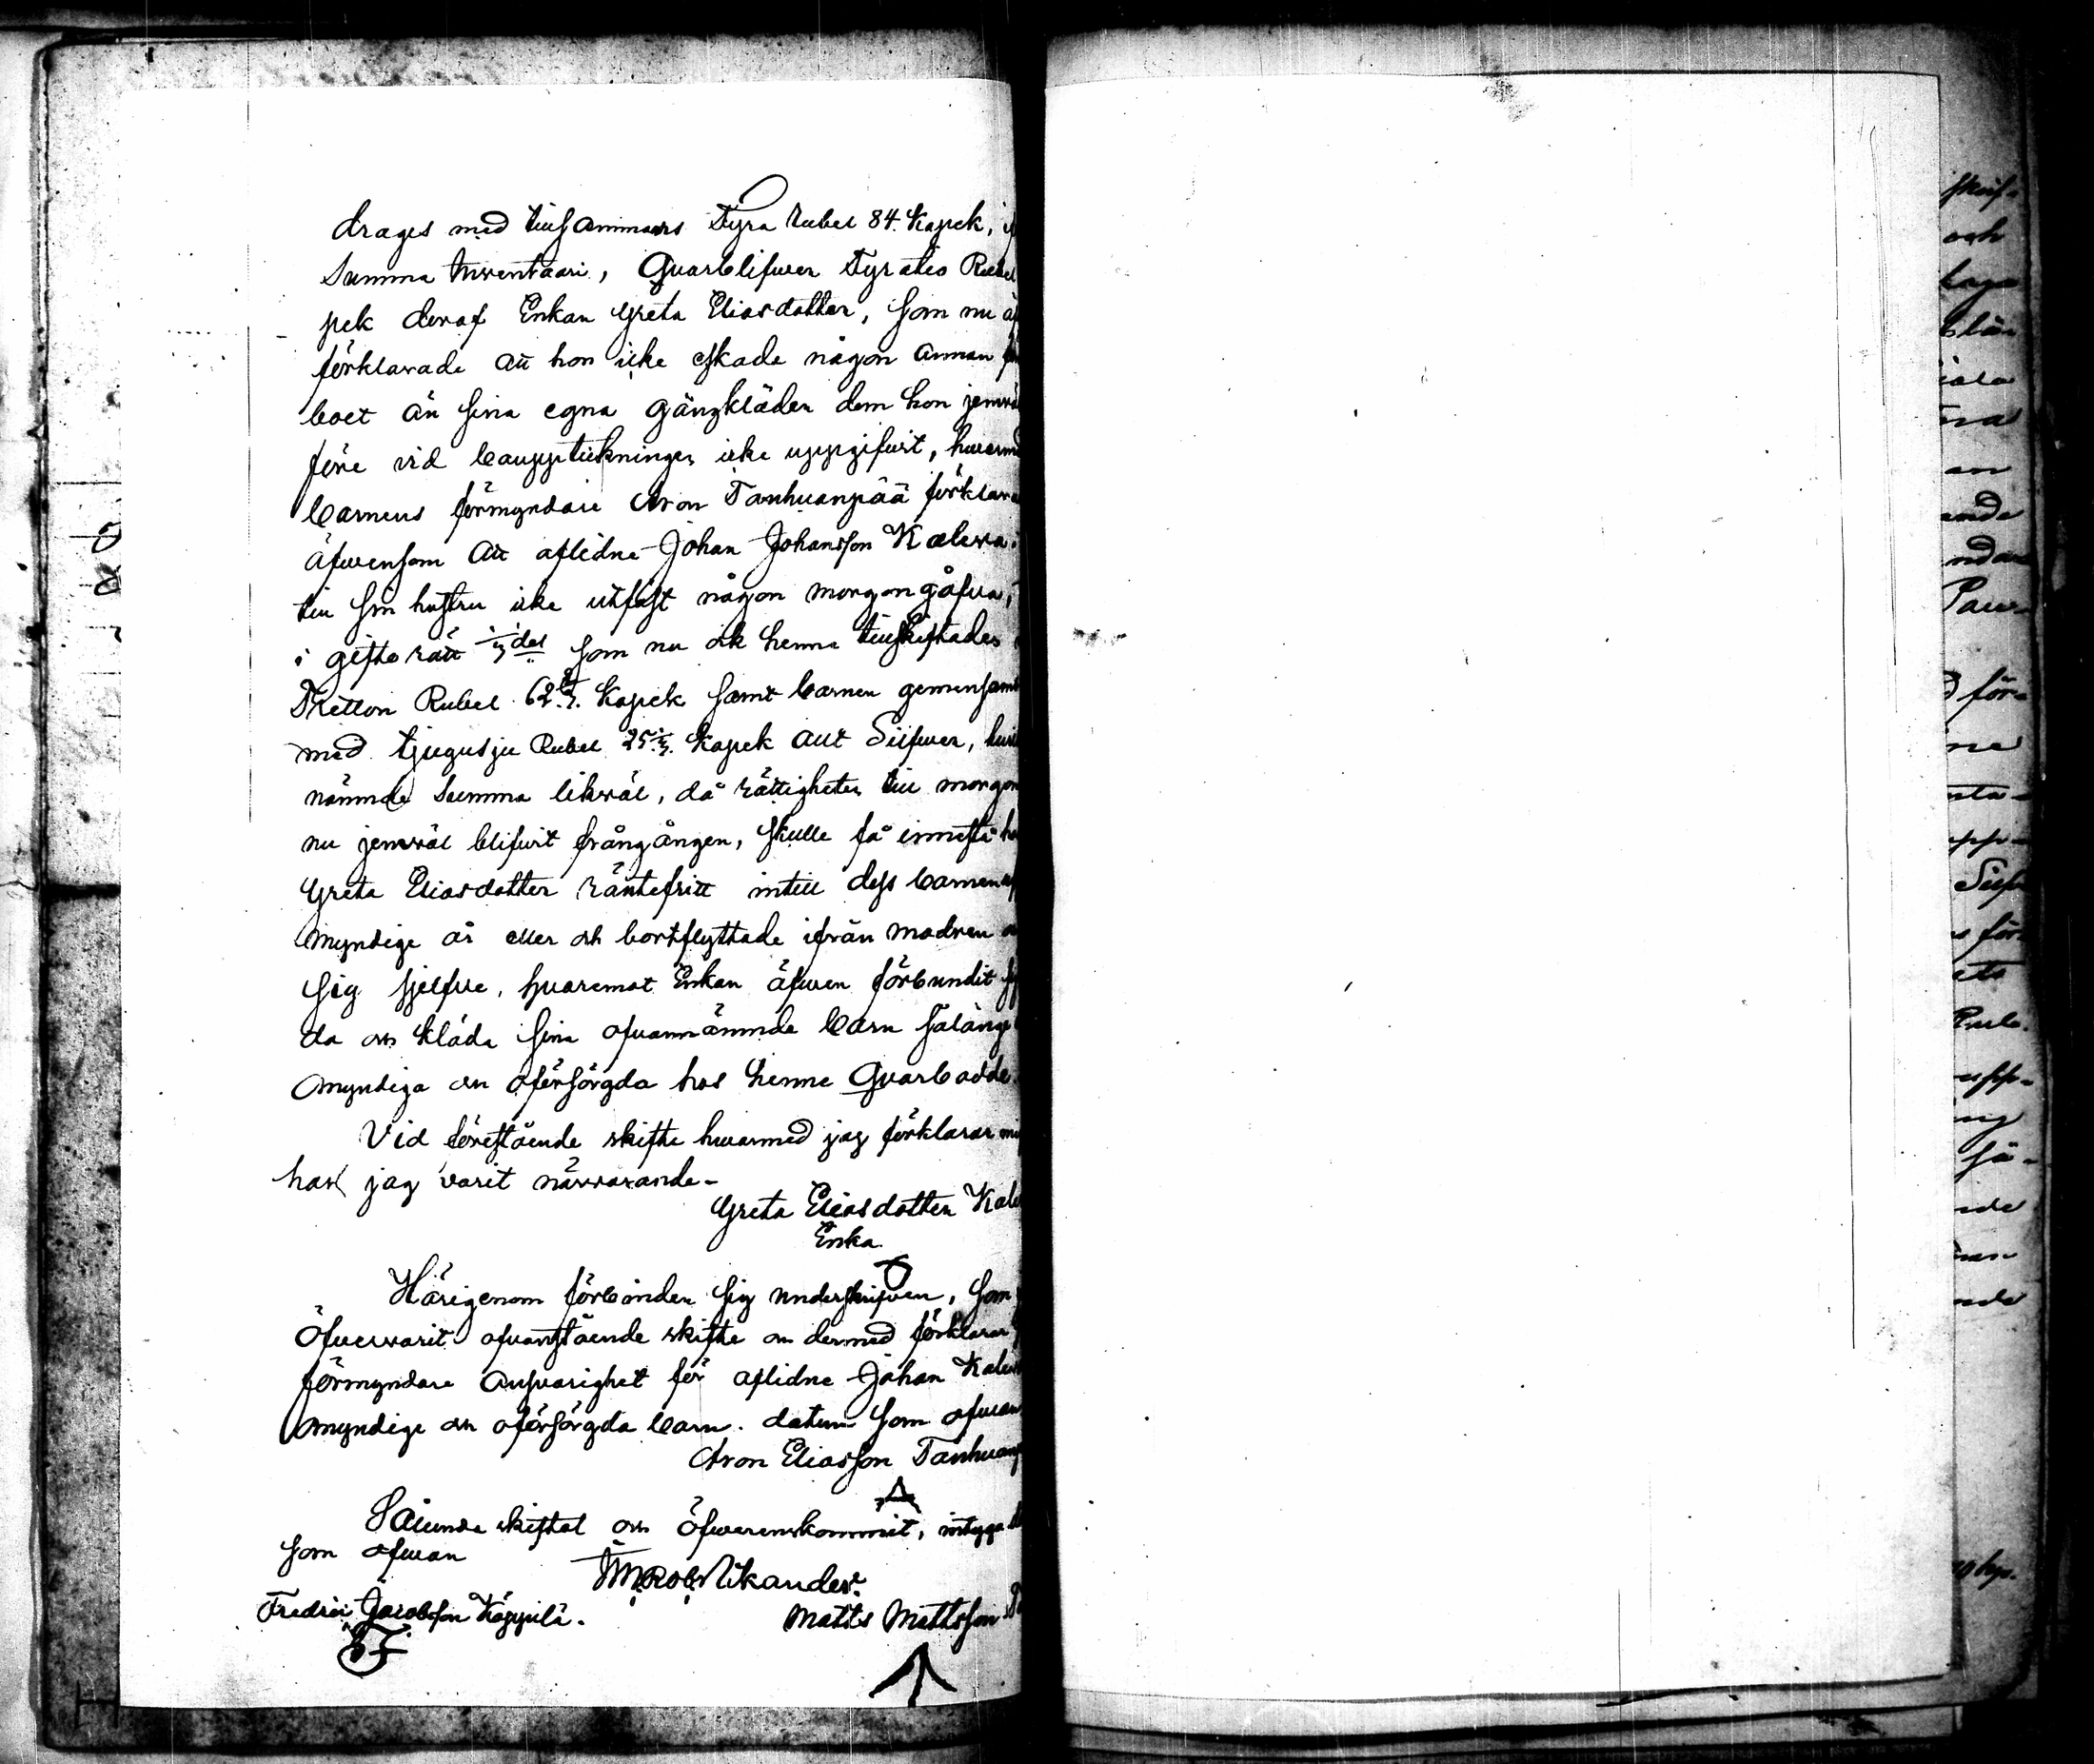 drages med tillsammans Fyra Rubel 84. Kopek, if
Summa Inventari, Qvarblifwer Fyratio Rubel
pek deraf Enkan Greta Eliasdotter, som nu äf
förklarade att hon icke äskade någon annan för
boet än sina egna gångkläder dem hon jemwä
före vid bouppteckningen icke uppgifwit, hwarme
barnens förmyndare Aron Tanhuanpää förklara
äfwensom att aflidne Johan Johansson Kalewa
till sin hustru icke utfäst någon morgongåfwa,
i giftorätt 1/3 del som nu ock henne tillskiftades
Tretton Rubel 62 2/3. Kopek samt barnen gemensamt
med tjugusju Rubel 25 1/3. Kopek allt Silfwer, hwil
nämnde Summa likwäl, då rättigheten till morgon
nu jemwäl blifwit frångången, skulle få innestå ho
Greta Eliasdotter räntefritt intill dess barnen
myndige år eller och bortflyttade ifrån modren
sig sjelfve, hvaremot Enkan äfwen förbundit
da och kläda sina ofvannämnde barn sålänge
omyndiga och oförsörgda hos henne Qvarbodde.
Vid förestående skifte hwarmed jag förklarar mig
har jag varit närwarande-
Greta Eliasdotter Kale
Enka
Härigenom förbinder sig underskrifven, som
öfwerwarit ofvanstående skifte och dermed förklarar
förmyndare Answarighet för aflidne Johan Kalew
omyndige och oförsörgda barn. datum som ofwan
Aron Eliasson Tanhuanp
Sålunda skiftat och öfwerenskommit, intyga
som ofwan
Rob. Wikander.
Fredric Jacobsson Käppilä.
Matts Mattsson